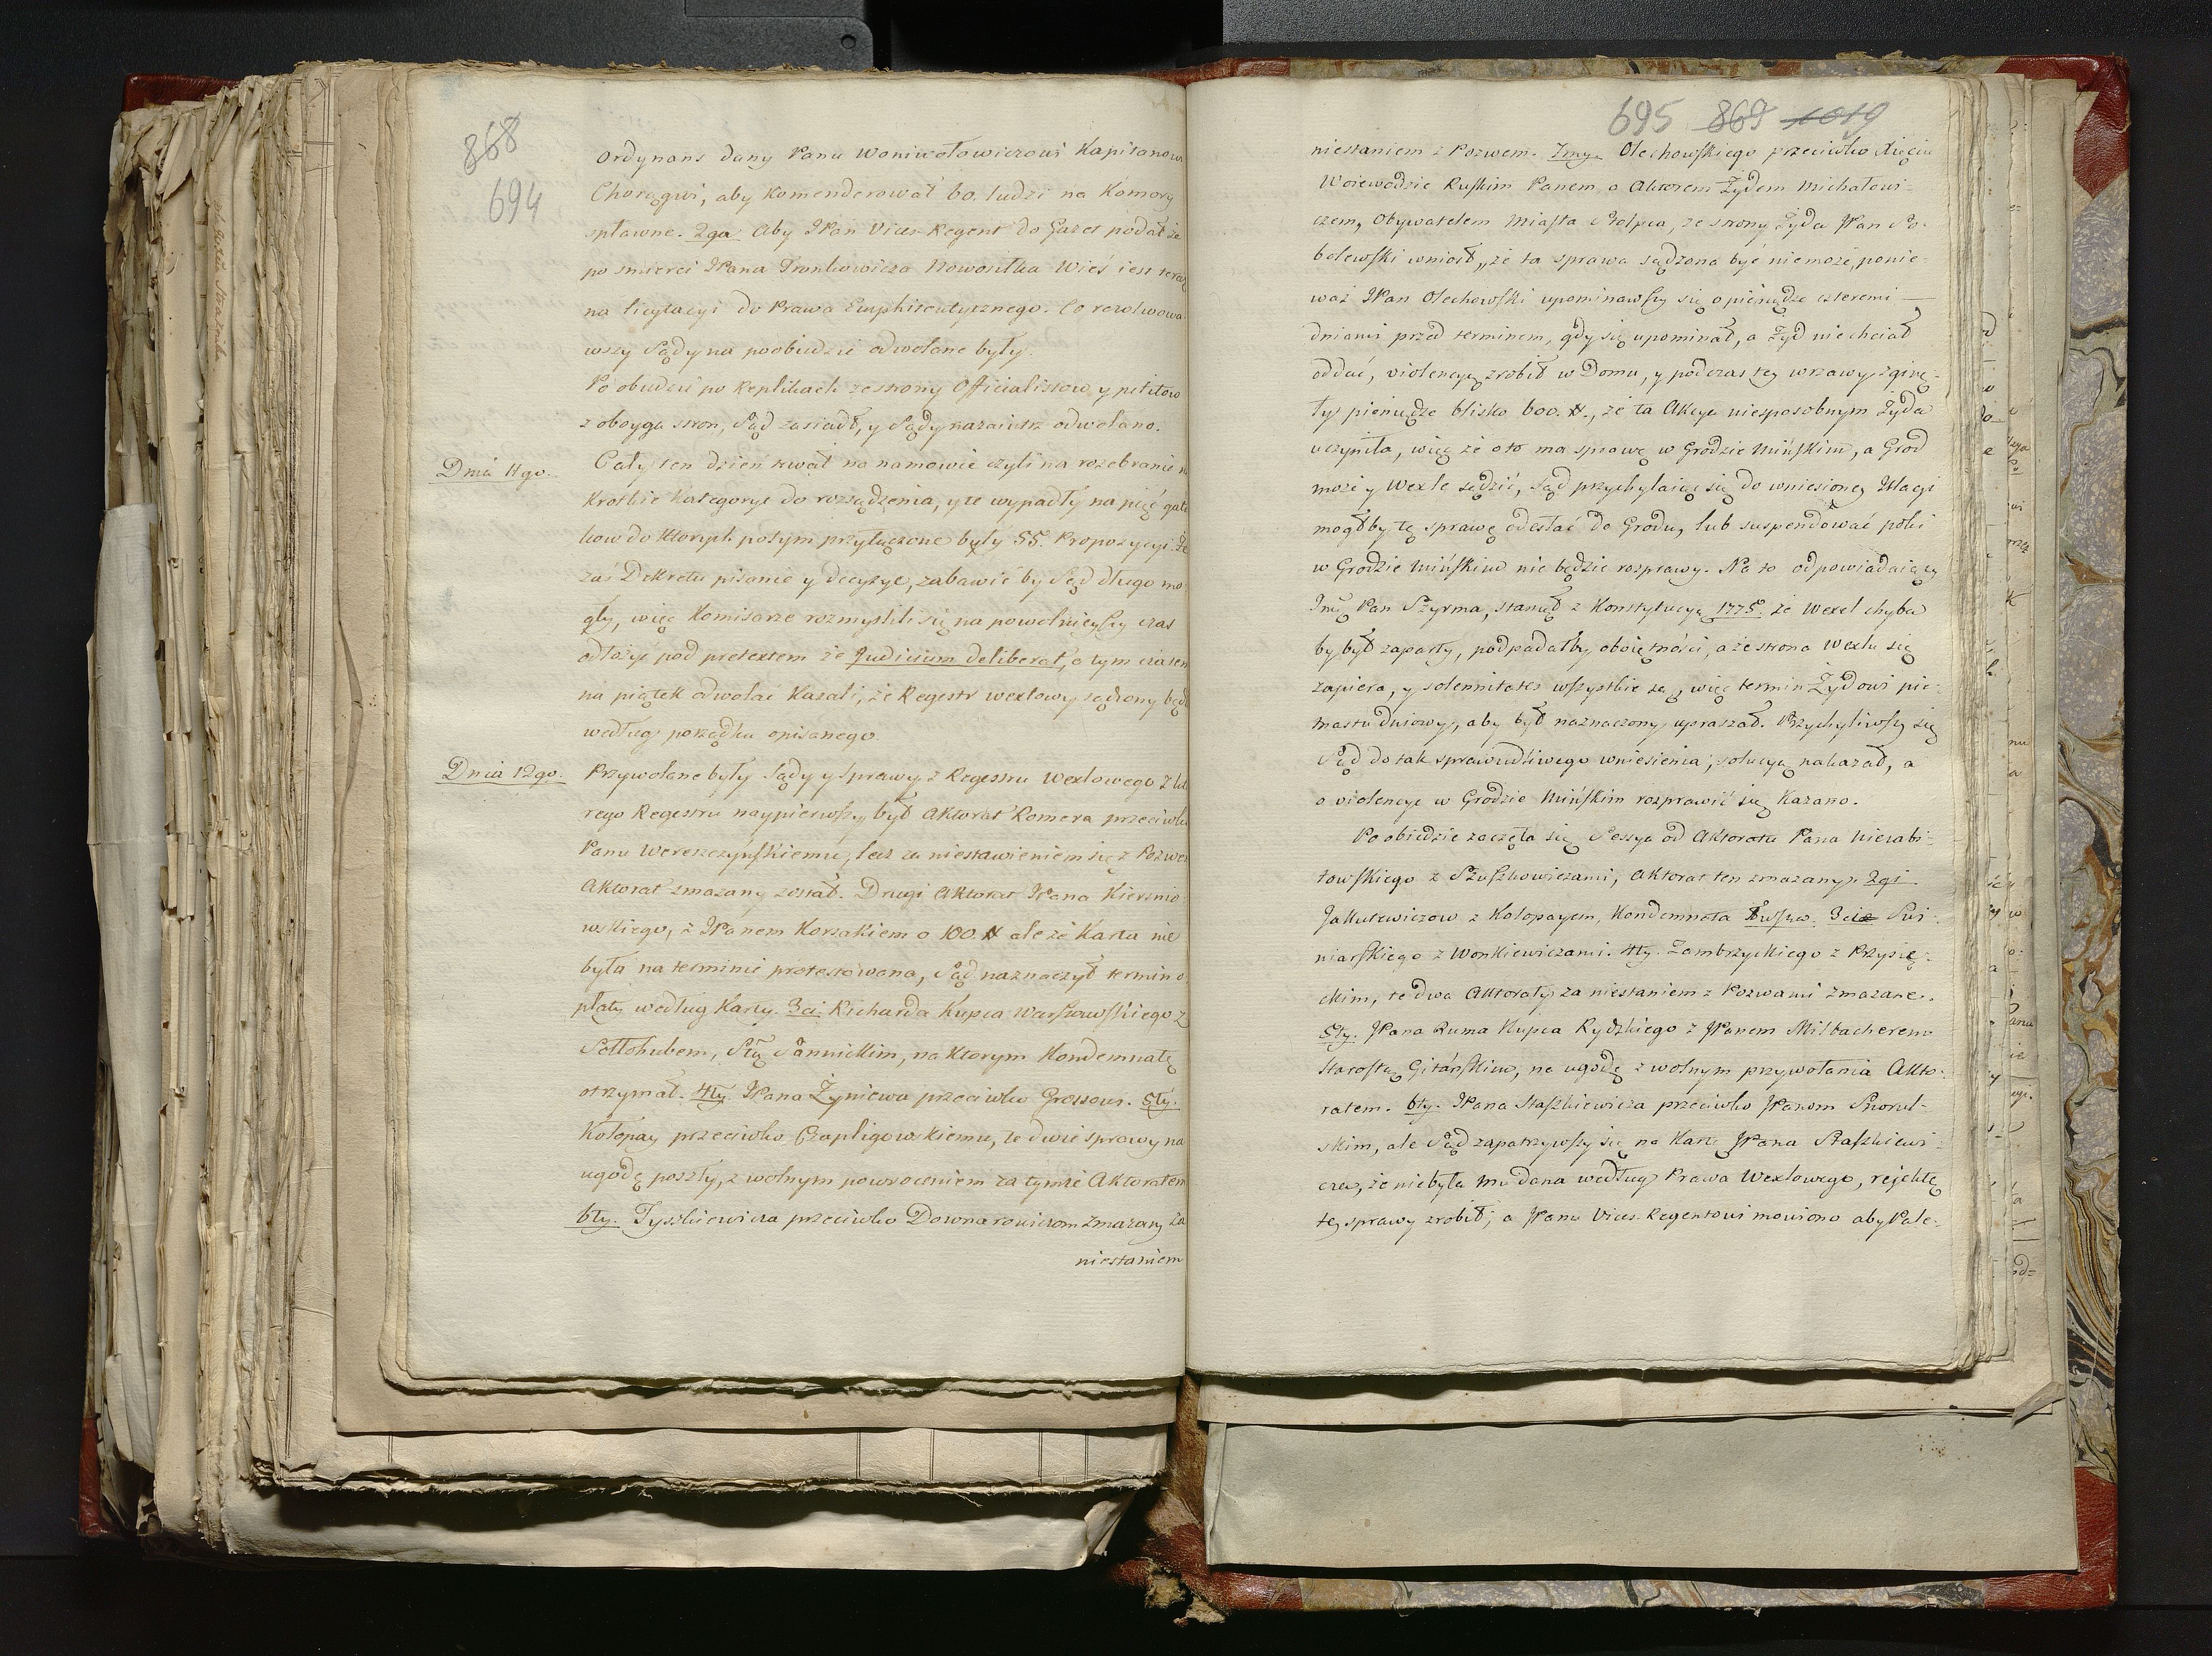 868
694
ordynans dany Panu Woniwołowiczowi Kapitanowi
Chorągwi, aby Komenderował 60. ludzi na Komory
spławne. 2ga. Aby JPan Vices-Regent do Gazet podał że
po smierci JPana Nowosiłka Wieś iest teraz
na licytacyi do Prawa Emphiteutycznego. Co rezolwowa
wszy Sądy na poobiedzie odwołane były.
Po obiedzie po Replikach ze strony Officialistow y petitow
z oboyga stron, Sąd zasiadł, y Sądy nazaiutrz odwołano.
Dnia 11go.
Cały ten dzień trwał na namowie czyli na rozebranie na
krotkie kategorye do rozsądzenia, y te wypadły na pięć gatu
kow do ktorych potym przyłączone były 55. Propozycyi. Że
zas Dekretu pisanie y decyzye, zabawić by Sąd długo mo
gły, więc Komisarze rozmyslili się na powolnieyszy czas
odłożyć pod pretextem że Judicium deliberat, o tym czasem
na piątek odwołać kazali, że Regestr wexlowy sądzony będz
według porządku opisanego.
Dnia 12go.
Przywołane były Sądy y sprawy z Regestru Wexlowego z kto
rego Regestru naypierwszy był Aktorat Romera przeciwko
Panu Wereszczyńskiemu, lecz za niestawieniem się z Pozwem
Aktorat zmazany został. Drugi Aktorat JPana Kiersno
wskiego, z JPanem Korsakiem o 100. # ale że Karta nie
była na terminie protestowana, Sąd naznaczył termin o
płaty według Karty. 3ci. Richarda Kupca Warszawskiego z
Sołłohubem, Sttą Sannickim, na ktorym Kondemnatę
otrzymał. 4ty. JPana Żyniewa przeciwko Grossowi. 5ty.
Kołopay przeciwko Czapligowskiemu, te dwie sprawy na
ugodę poszły, z wolnym powroceniem za tymże Aktoratem
6ty. Tyszkiewicza przeciwko Downarowiczom zmazany za
niestaniem
695 869 1019
niestaniem z Pozwem. 7my. Olechowskiego przeciwko Xięciu
Woiewodzie Ruskim Panem a Aktorem Żydem Michałowi-
czem, Obywatelem Miasta Stołpca, ze strony Żyda JPan So-
bolewski wniosł, „że ta sprawa sądzona być niemoże, ponie-
waż JPan Olechowski upominawszy się o pieniądze czteremi
dniami przed terminem, gdy się upominał, a Żyd niechciał
oddać, violencyą zrobił w Domu, y podczas tey wrzawy zginę-
ły pieniądze blisko 600. #., że ta Akcya niesposobnym Żyda
uczyniła, więc że oto ma sprawę w Grodzie Mińskim, a Grod
może y Wexle sądzić, Sąd przychylaiąc się do wniesioney Illacyi
mogłby tę sprawę odesłać do Grodu, lub suspendować poki
w Grodzie Mińskim nie będzie rozprawy. Na to odpowiadaiący
Jmć Pan Szyrma, stanął z Konstytucyą 1775º. że Wexel chyba
by był zaparty, podpadałby oboiętności, a że strona Wexlu się
zapiera, y solennitates wszystkie są, więc termin Żydowi pię-
tnastu dniowy, aby był naznaczony upraszał. Przychyliwszy się
Sąd do tak sprawiedliwego wniesienia, solucyą nakazał, a
o violencye w Grodzie Mińskim rozprawić się Kazano.
Po obiedzie zaczęła się Sessya od Aktoratu Pana Nierabi-
towskiego z Szuszkowiczami, Aktorat ten zmazany. 2gi
Jakutowiczow z Kołopayem, Kondemnata wuszła. 3ci Swi-
niarskiego z Wonkiewiczami. 4ty. Zambrzyckiego z Przysie-
ckim, te dwa Aktoraty za niestaniem z Pozwami zmazane.
5ty. JPana Ruma Kupca Rydzkiego z JPanem Milbacherem
Starostą Gitańskim, na ugodę z wolnym przywołania Akto-
ratem. 6ty. JPana Staszkiewicza przeciwko JPanom Snorul-
skim, ale Sąd zapatrzywszy się na Kartę JPana Staszkiewi-
cza, że niebyła mu dana według Prawa Wexlowego, rejektę
tey sprawy zrobił; a JPanu Vices-Regentowi mowiono aby Pale-